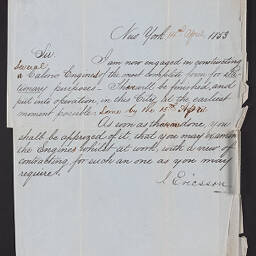 New York 14th April 1853
Sir.
I am now engaged in constructing
several Caloric Engines of the most complete form for sta-
tionary purposes - shall be finished, and
put into operation, in this City at the earliest
moment possible. some by the 15th
As soon as done, you
shall be apprized of it, that you may examine
the Engines whilst at work, with a view of
contracting for such an one as you may
require.
J. Ericsson